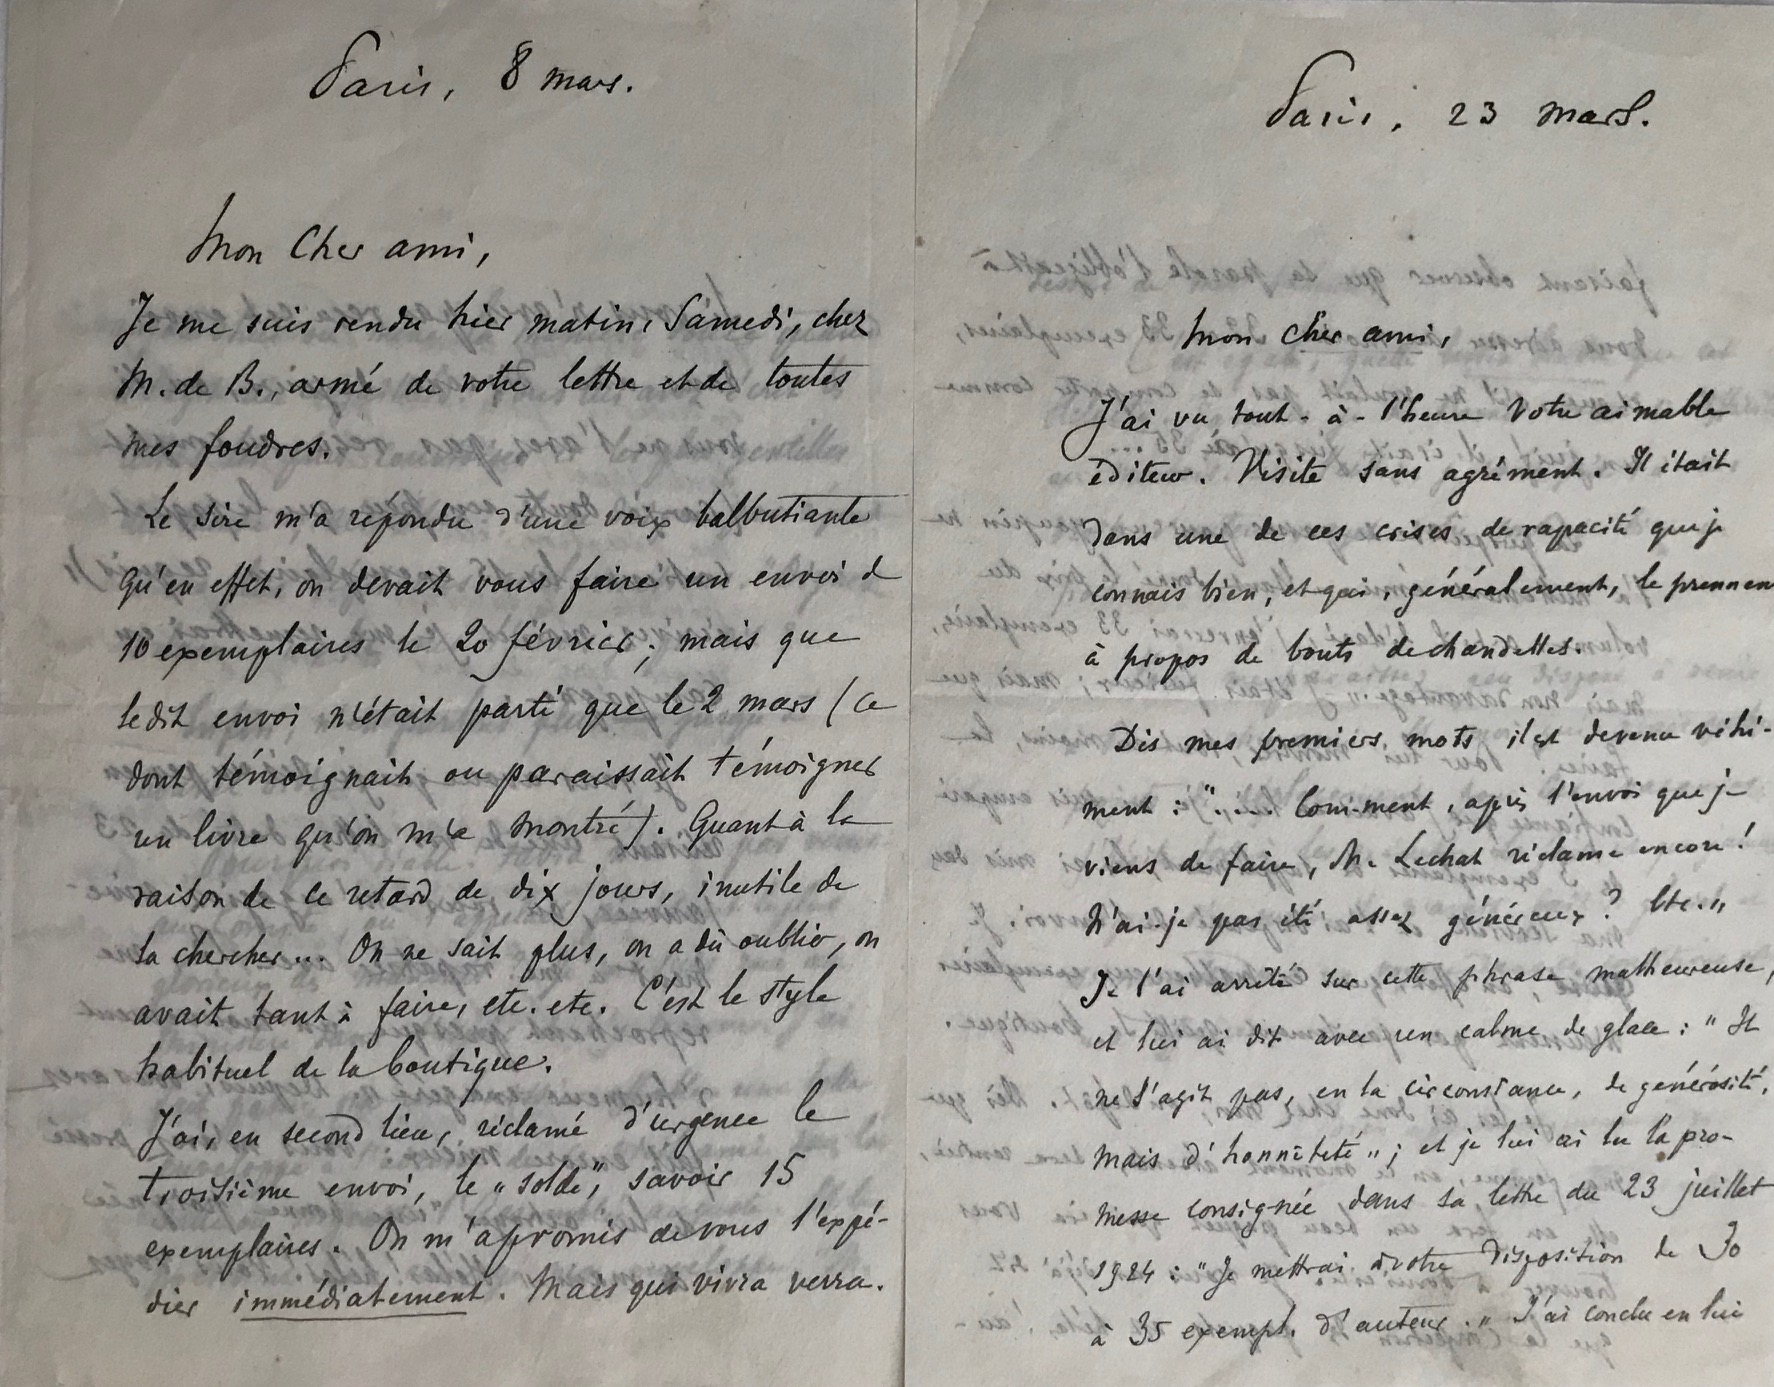 Paris, 8 mars.
Mon Cher ami,
Je me suis rendu hier matin, Samedi, chez
M. de B., armé de votre lettre et de toutes
mes foudres.
Le Sire m'a répondu d'une voix balbutiante
qu'en effet, on devait vous faire un envoi d
10 exemplaires le 20 février ; mais que
ledit envoi n'était parti que le 2 mars (ce
dont témoignait ou paraissait témoigner
un livre qu'on m'a montré). Quant à la
raison de ce retard de dix jours, inutile de
la chercher... On ne sait plus, on a dû oublier, on
avait tant à faire, etc. etc. C'est le style
habituel de la boutique.
J'ai, en second lieu, réclamé d'urgence le
troisième envoi, le "solde", savoir 15
exemplaires. On m'a promis de vous l'expé-
dier immédiatement. Mais qui vivra verra.
Paris, 23 mars.
Mon cher ami,
J'ai vu tout-à-l'heure votre aimable
éditeur. Visite sans agrément. Il était
dans une de ces crises de rapacité que je
connais bien, et qui, généralement, le prennen
à propos de bouts de chandelles.
Dès mes premiers mots il est devenu véhé-
ment : "..... Comment, après l'envoi que je
viens de faire, M. Lechat réclame encore !
N'ai-je pas été assez généreux ? Etc."
Je l'ai arrêté sur cette phrase malheureuse,
et lui ai dit avec un calme de glace : "Il
ne s'agit pas, en la circonstance, de générosité,
mais d'honnêteté" ; et je lui ai lu la pro-
messe consignée dans sa lettre du 23 juillet
1924 : "Je mettrai à votre disposition de 30
à 35 exempl. d'auteur." J'ai conclu en lui